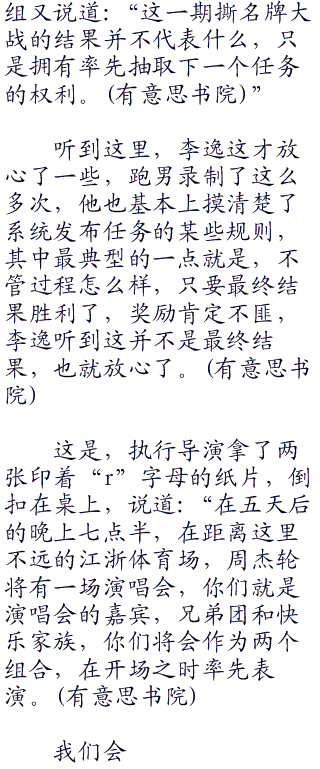 组又说道：“这一期撕名牌大
战的结果并不代表什么，只
是拥有率先抽取下一个任务
的权利。(有意思书院)”
听到这里，李逸这才放
心了一些，跑男录制了这么
多次，他也基本上摸清楚了
系统发布任务的某些规则，
其中最典型的一点就是，不
管过程怎么样，只要最终结
果胜利了，奖励肯定不匪，
李逸听到这并不是最终结
果，也就放心了。(有意思书
院)
这是，执行导演拿了两
张印着“r”字母的纸片，倒
扣在桌上，说道：“在五天后
的晚上七点半，在距离这里
不远的江浙体育场，周杰轮
将有一场演唱会，你们就是
演唱会的嘉宾，兄弟团和快
乐家族，你们将会作为两个
组合，在开场之时率先表
演。(有意思书院)
我们会